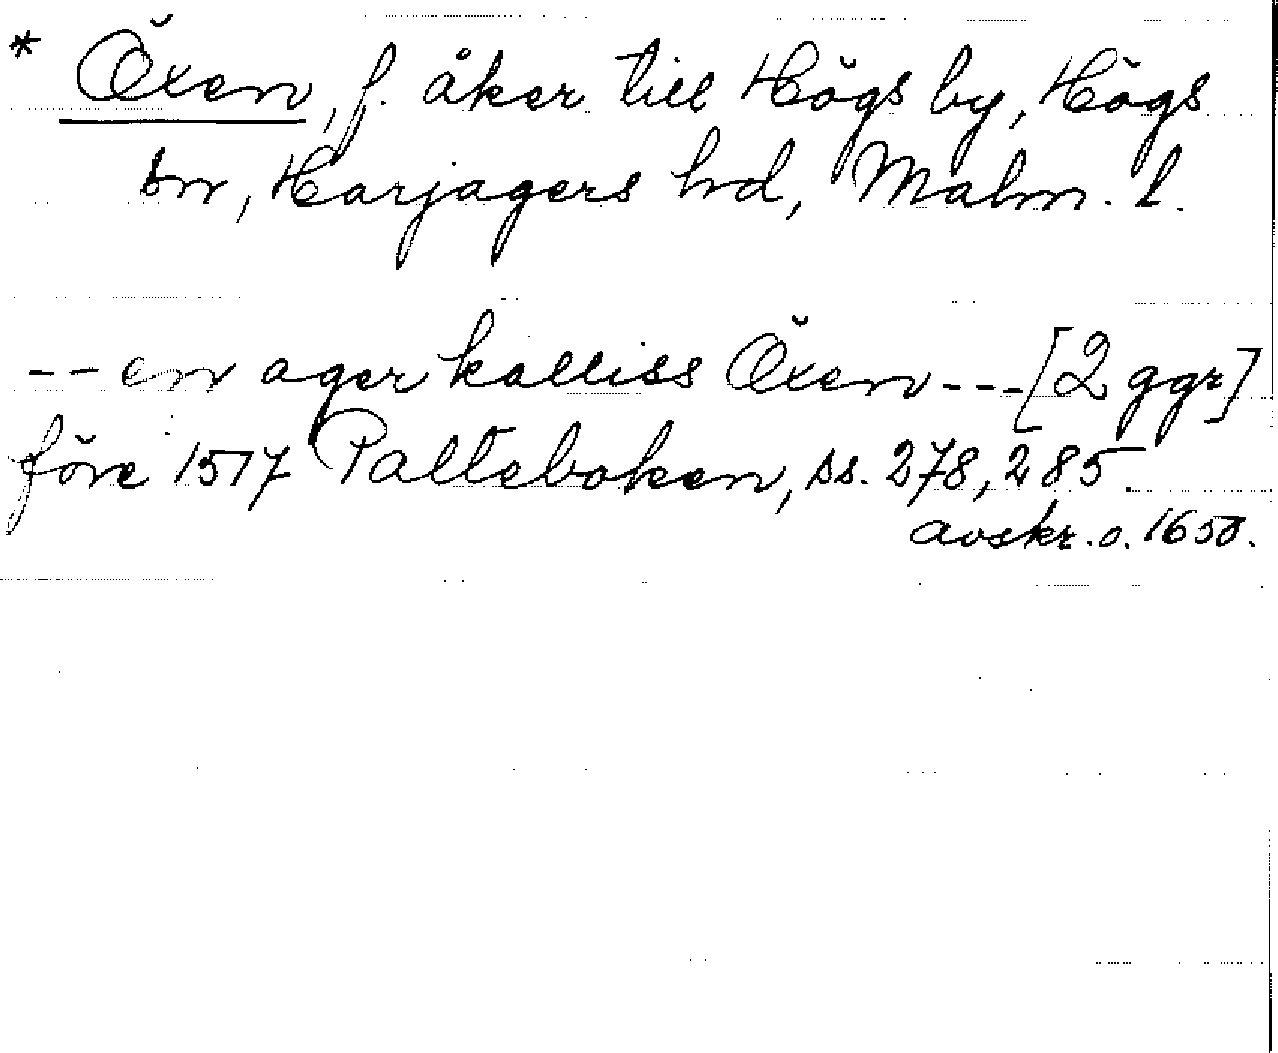 * Öxen, f. åker till Högs by, Högs
sn, Harjagers hd, Malm. l.
-- en ager kalliss Öxen --- [2 ggr]
före 1517 Palteboken, ss. 278, 285.
avskr. o. 1650.